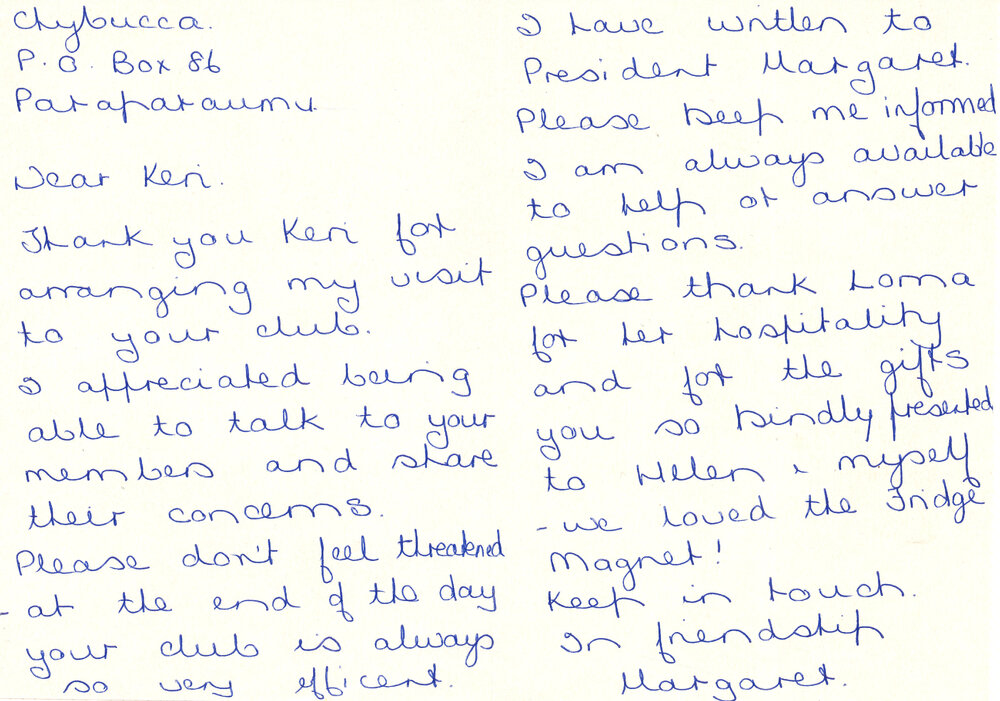 Chybucca.
P.O. Box 86
Paraparaumu.
Dear Keri.
Thank you Keri for
arranging my visit
to your club.
I appreciated being
able to talk to your
members and share
their concerns.
Please don't feel threatened
- at the end of the day
your club is always
so very efficent.
I have written to
President Margaret.
Please keep me informed
I am always available
to help or answer
questions.
Please thank Lorna
for her hospitality
and for the gifts
you so kindly presented
to Helen & myself
- we loved the Fridge
Magnet!
Keep in touch.
In friendship
Margaret.